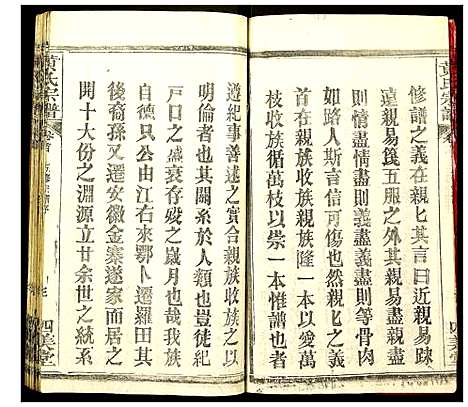 黄氏宗譜
修譜之義在親匕其言曰近親易踈
遠親易㒺五服之外其親易盡親盡
則情盡情盡則義盡義盡則等骨肉
如路人斯言可傷也然為親匕之義
首在親族收族親族隆一本以愛萬
枝收族循萬枝以崇一本惟譜也可
遵紀事善述之實合親族收族之以
明倫者也其關系於人類也豈徒紀
戶口之盛衰存歿之歲月也哉我族
自德只公由江右來鄂卜遷羅田其
後裔孫又遷安徽金寨遂家而居之
開十大份之淵源立廿余世之統系
黄氏宗譜
卷首
四美堂
四美堂